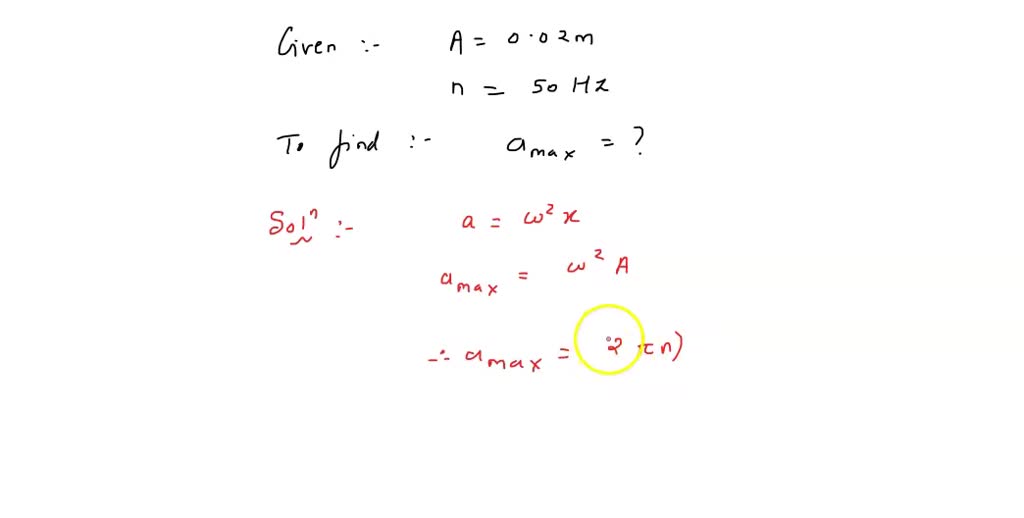 Given :- A = 0.02m
n = 50 Hz
To find :- a max = ?
Solⁿ :- a = ω² x
a max = ω² A
∴ a max = 2 π n)